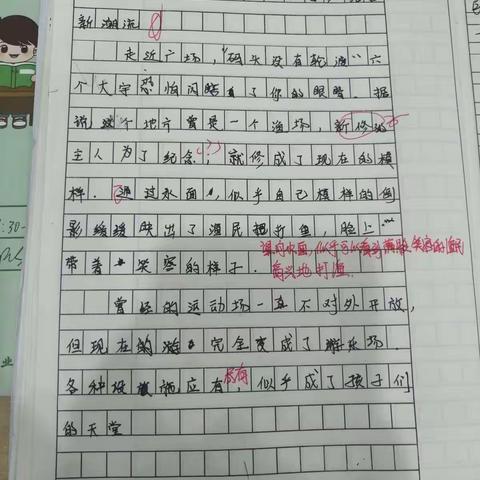 新潮流
走近广场,“码头没有轮渡”六
个大字恐怕闪瞎了你的眼睛。据
说这个地方曾是一个渔场,新修
主人为了纪念(?),就修成了现在的模
样。透过水面,似乎自己模样的倒
影缓缓映出了渔民打鱼,脸上
带着笑容的样子.
渔民
高兴地打渔.
曾经的运动场一直不对外开放,
但现在完全变成了游乐场.
各种设施应有尽有,似乎成了孩子们
的天堂
:30-
业